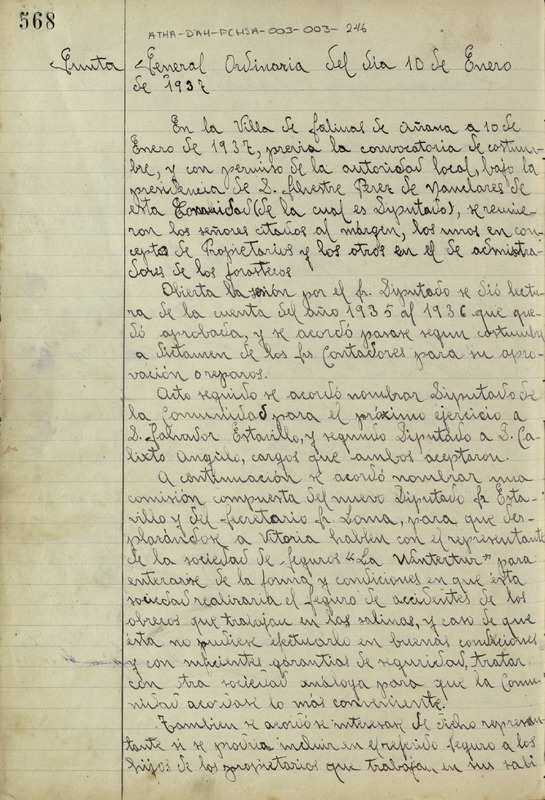 568
ATHA-DAH-FCHSA-003-003-246
Junta General Ordinaria del día 10 de Enero
de 1937
En la Villa de Salinas de Añana a 10 de
Enero de 1937, previa la convocatoria de costum-
bre, y con permiso de la autoridad local, bajo la
presidencia de D. Silvestre Perez de Nanclares de
esta Comunidad (de la cual es Diputado), se reunie-
ron los señores citados al márgen, los unos en con-
cepto de Propietarios y los otros en el de administra-
dores de los forasteros
Abierta la sesión por el Sr. Diputado se dió lectu-
ra de la cuenta del año 1935 al 1936 que que-
dó aprobada, y se acordó pasase segun costumbre
a dictamen de los Srs Contadores para su apro-
vación o reparos.
Acto seguido se acordó nombrar Diputado de
la Comunidad para el próximo ejercicio a
D. Salvador Estavillo, y segundo Diputado a D. Ca-
lixto Angulo, cargos que ambos aceptaron.
A continuación se acordó nombrar una
comisión compuesta del nuevo Diputado Sr. Esta-
villo y del Secretario Sr. Loma, para que des-
plazándose a Vitoria hablen con el representante
de la sociedad de seguros "La Wintertur" para
enterarse de la forma y condiciones en que ésta
sociedad realizaria el seguro de accidentes de los
obreros que trabajan en las salinas, y caso de que
ésta no pudiese efectuarlo en buenas condiciones
y con suficientes garantias de seguridad, tratar
con otra sociedad análoga para que la Comu-
nidad acordase lo más conveniente.
Tambien se acordó se interesase de dicho represen-
tante si se podria incluir en el referido seguro a los
hijos de los propietarios que trabajan en sus sali